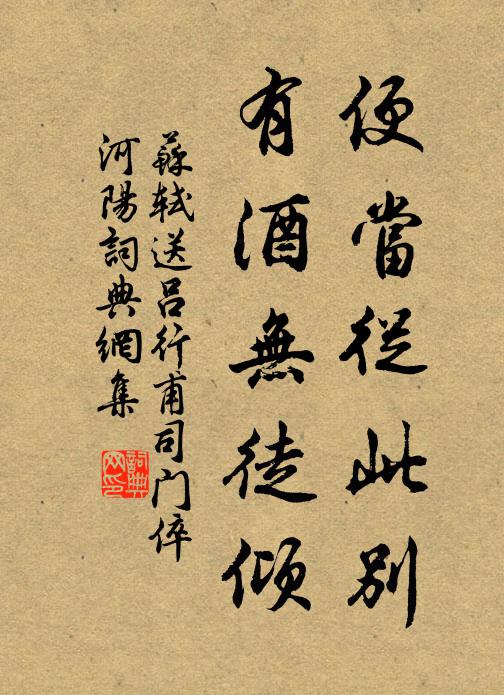 便當從此別
有酒無徒傾
蘇軾送呂行甫司門倅
河陽詞典網集
詞典网印